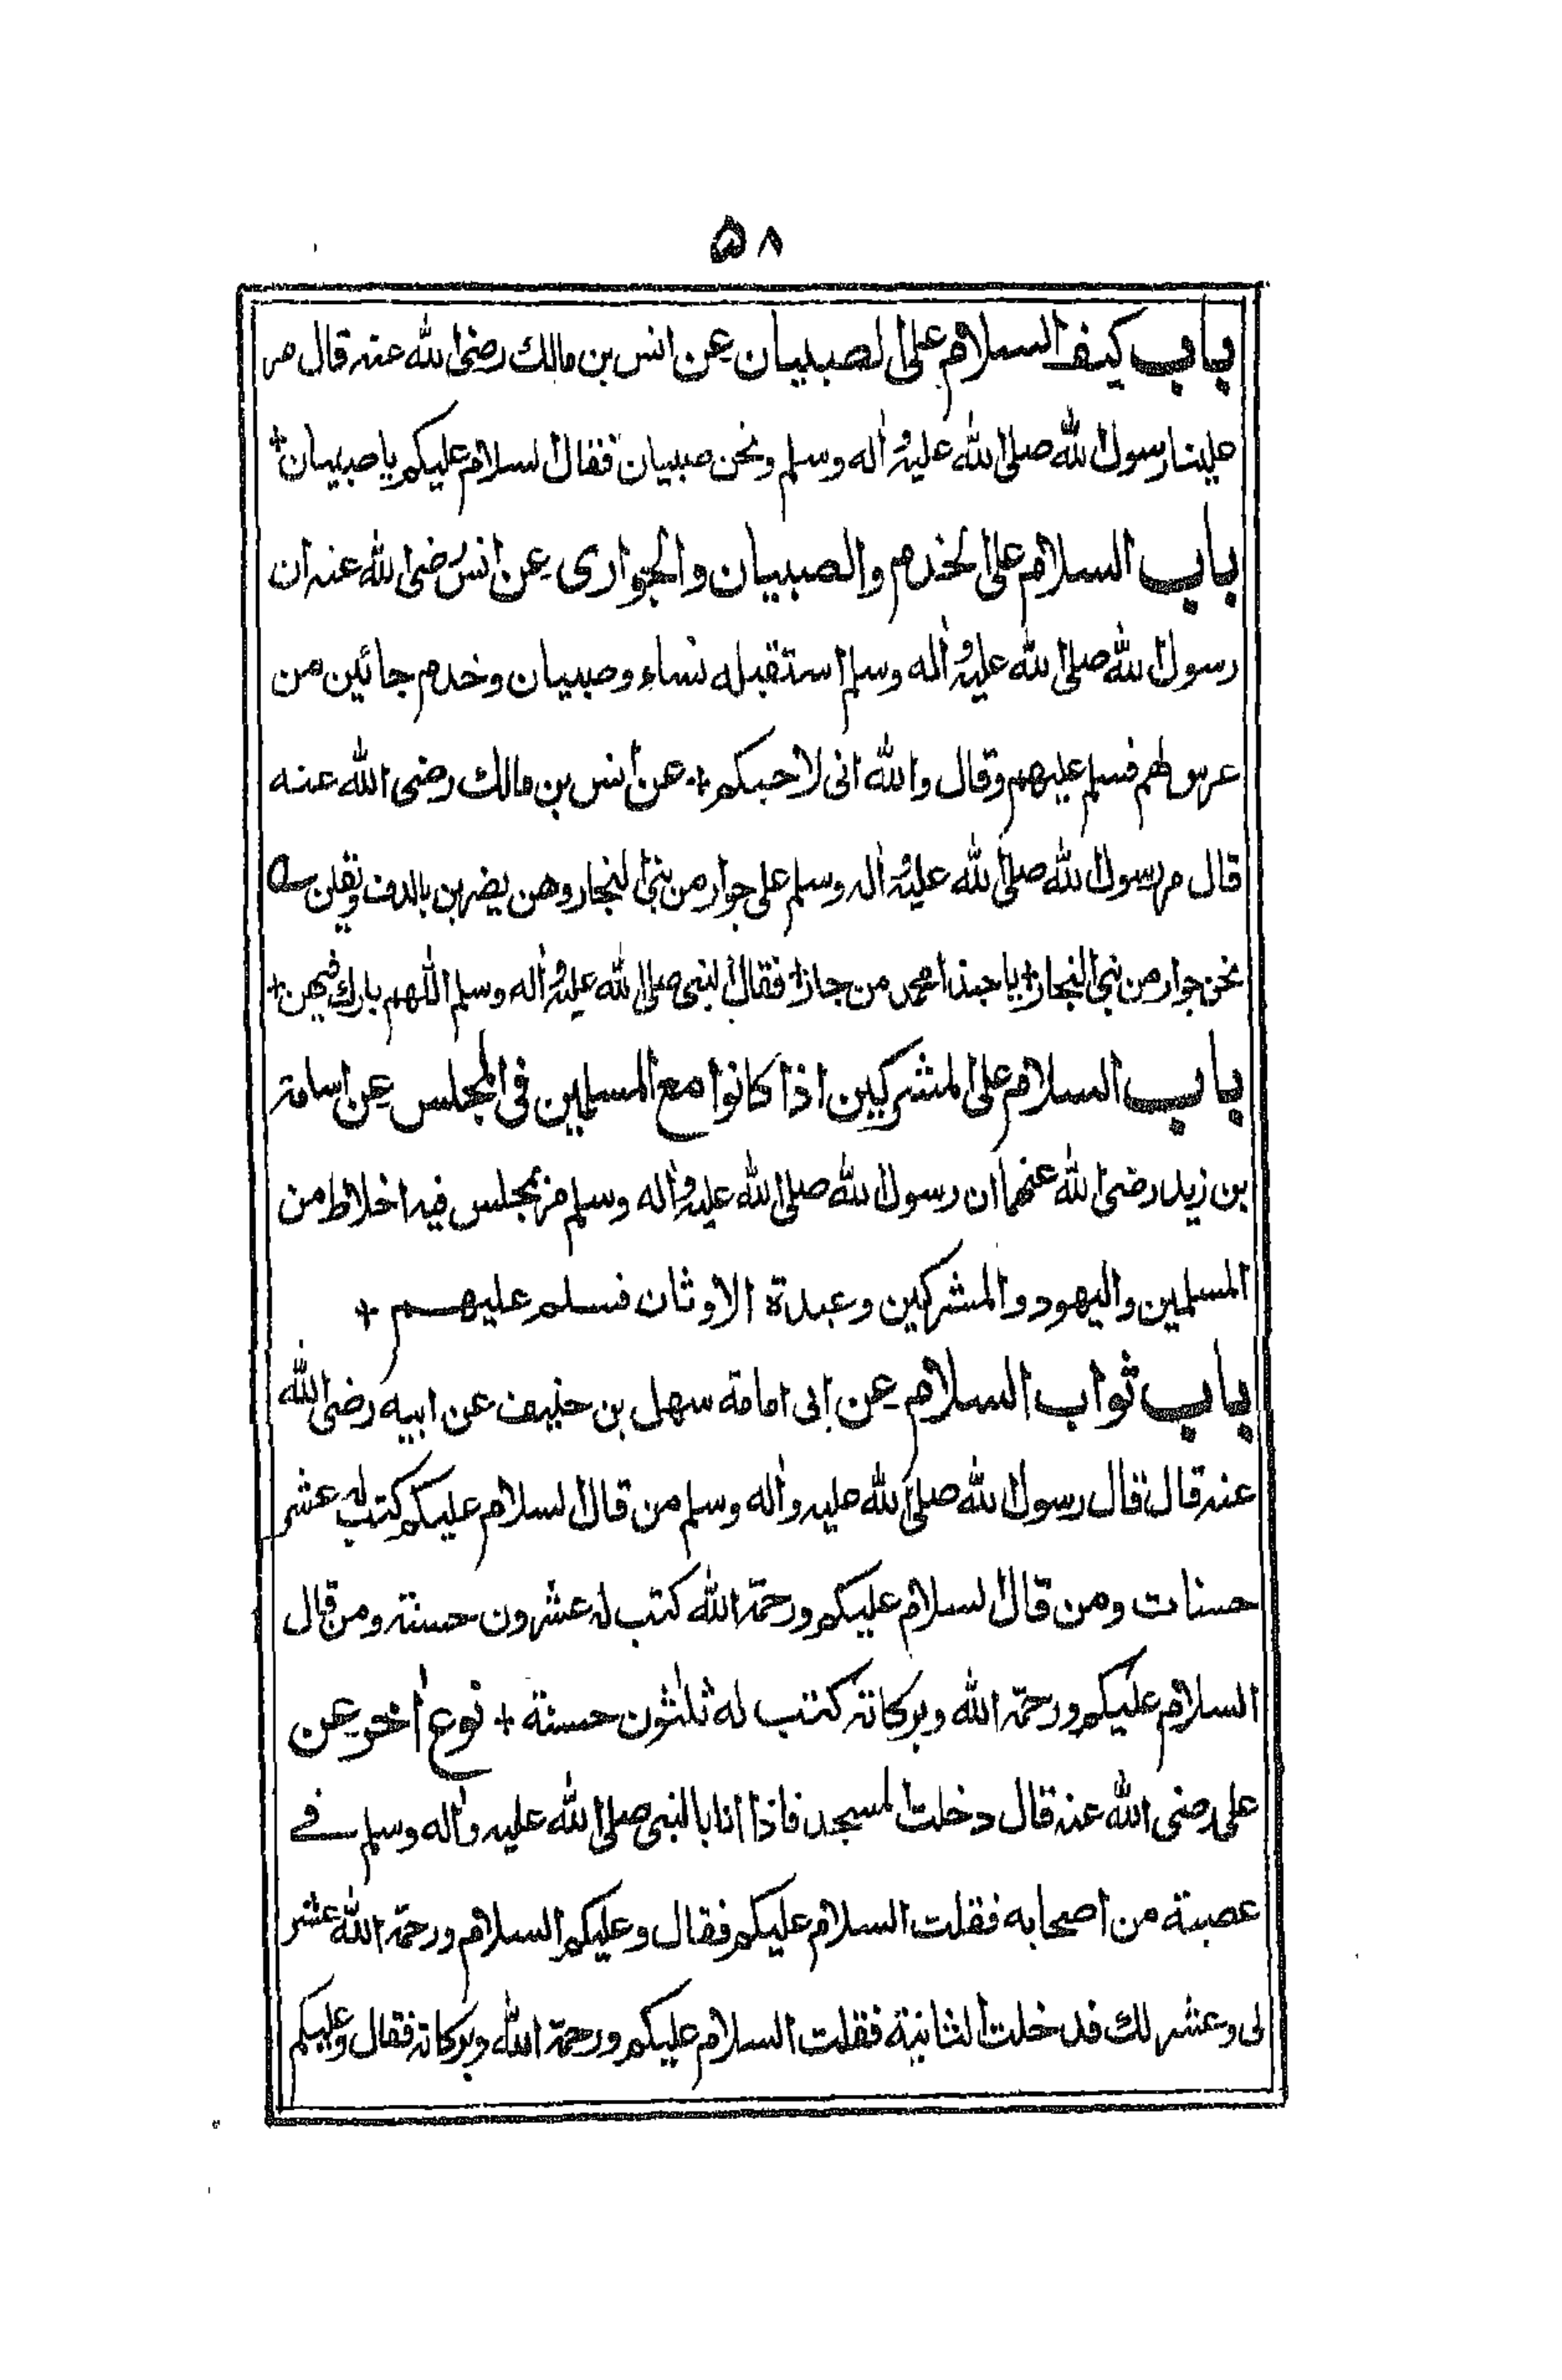 ۵۸
باب كيف السلام على الصبيان عن انس بن مالك رضى الله عنه قال مر
علينا رسول الله صلى الله عليه واٰله وسلم ونحن صبيان فقال السلام عليكم يا صبيان +
باب السلام على الخدم والصبيان والجوارى عن انس رضى الله عنه ان
رسول الله صلى الله عليه واٰله وسلم استقبله نساء وصبيان وخدم جائين من
عرس لهم فسلم عليهم وقال والله انى لاحبكم + عن انس بن مالك رضى الله عنه
قال مر رسول الله صلى الله عليه واٰله وسلم على جوار من بنى النجار وهن يضربن بالدف ويقلن ـه
نحن جوار من بنى النجار + يا حبذا محمد من جار + فقال النبى صلى الله عليه واٰله وسلم اللهم بارك فيهن +
باب السلام على المشركين اذا كانوا مع المسلمين فى المجلس عن اسامة
بن زيد رضى الله عنهما ان رسول الله صلى الله عليه واٰله وسلم مر بمجلس فيه اخلاط من
المسلمين واليهود والمشركين وعبدة الاوثان فسلم عليهم +
باب ثواب السلام عن ابى امامة سهل بن حنيف عن ابيه رضى الله
عنه قال قال رسول الله صلى الله عليه واٰله وسلم من قال السلام عليكم كتب له عشر
حسنات ومن قال السلام عليكم ورحمة الله كتب له عشرون حسنة ومن قال
السلام عليكم ورحمة الله وبركاته كتب له ثلٰثون حسنة + نوع اٰخر عن
على رضى الله عنه قال دخلت المسجد فاذا انا بالنبى صلى الله عليه واٰله وسلم فے
عصبة من اصحابه فقلت السلام عليكم فقال وعليكم السلام ورحمة الله عشر
لى وعشر لك فدخلت الثانية فقلت السلام عليكم ورحمة الله وبركاته فقال وعليكم